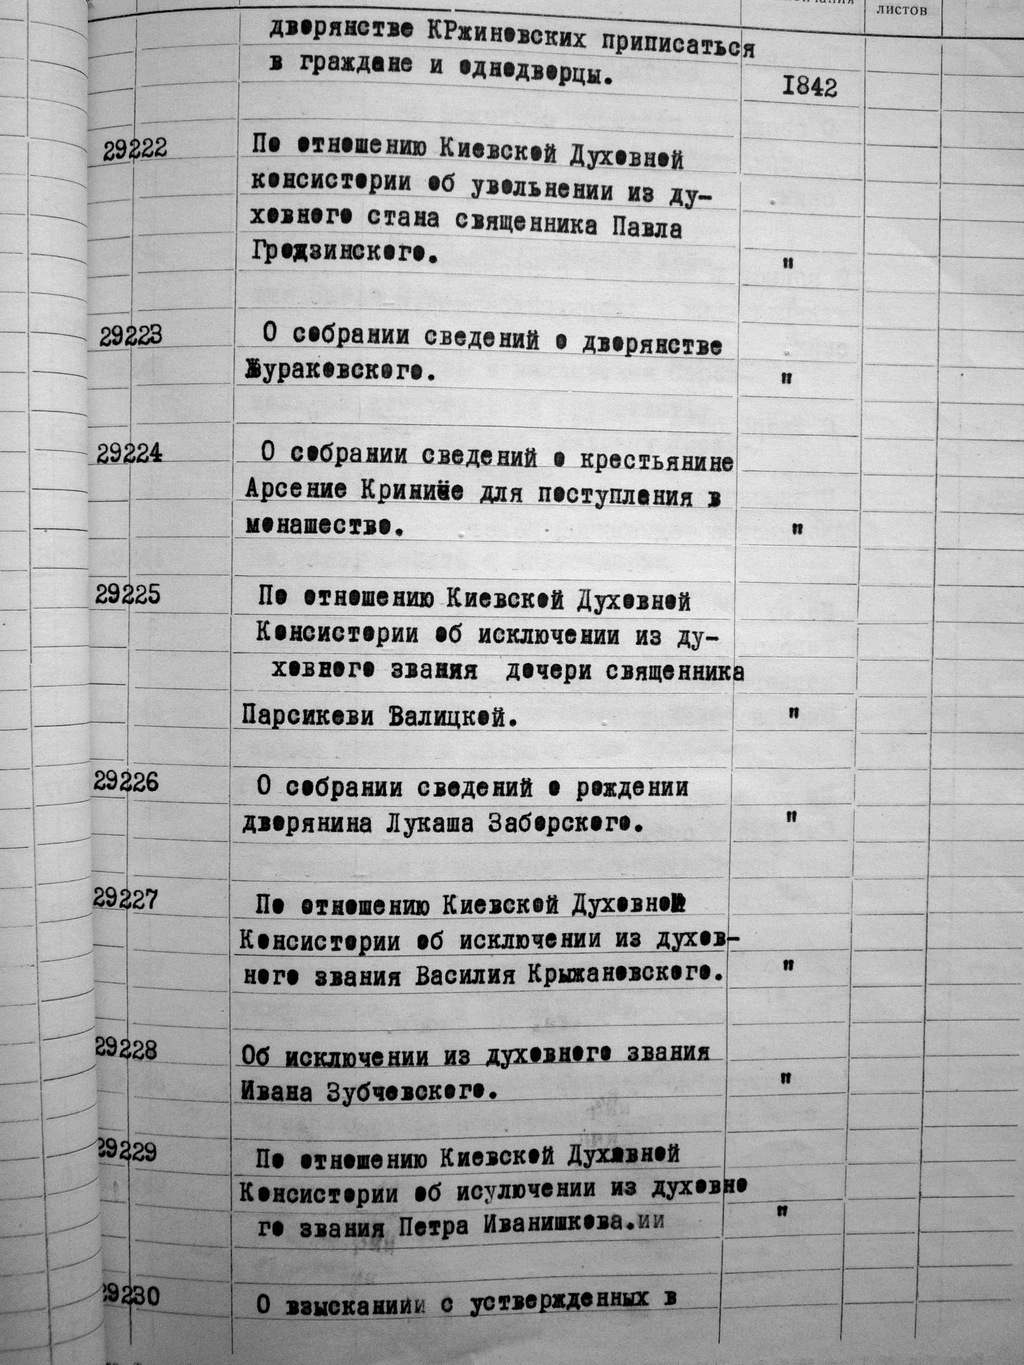 листов
дворянстве КРжиновских приписаться
в граждане и однодворцы.
1842
29222
По отношению Киевской Духовной
консистории об увольнении из ду-
ховного стана священника Павла
Гродзинского.
"
29223
О собрании сведений о дворянстве
Жураковского.
"
29224
О собрании сведений о крестьянине
Арсение для поступления в
монашество.
"
29225
По отношению Киевской Духовной
Консистории об исключении из ду-
ховного звания дочери священника
Парсикеви Валицкой.
"
29226
О собрании сведений о рождении
дворянина Лукаша Заборского.
"
29227
По отношению Киевской Духовной
Консистории об исключении из духов-
ного звания Василия Крыжановского.
"
29228
Об исключении из духовного звания
Ивана Зубчевского.
"
29229
По отношению Киевской Духовной
Консистории об исулючении из духовно
го звания Петра Иванишкова.ии
"
29230
О взысканиии с устверженных в